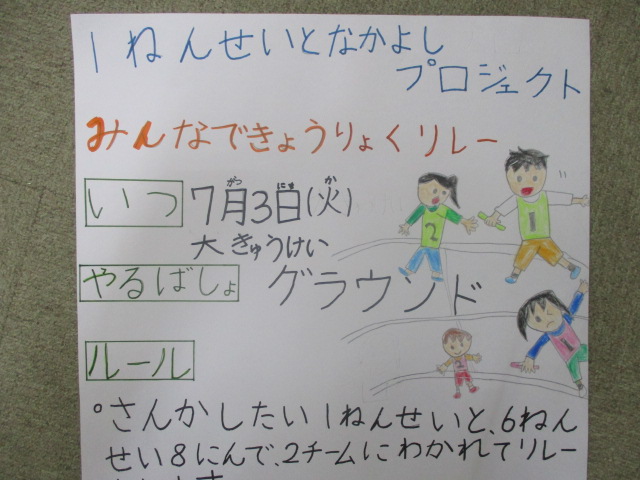 1ねんせいとなかよし
プロジェクト
みんなできょうりょくリレー
いつ 7月3日(火)
大きゅうけい
やるばしょ グラウンド
ルール
。さんかしたい1ねんせいと、6ねん
せい8にんで、2チームにわかれてリレー